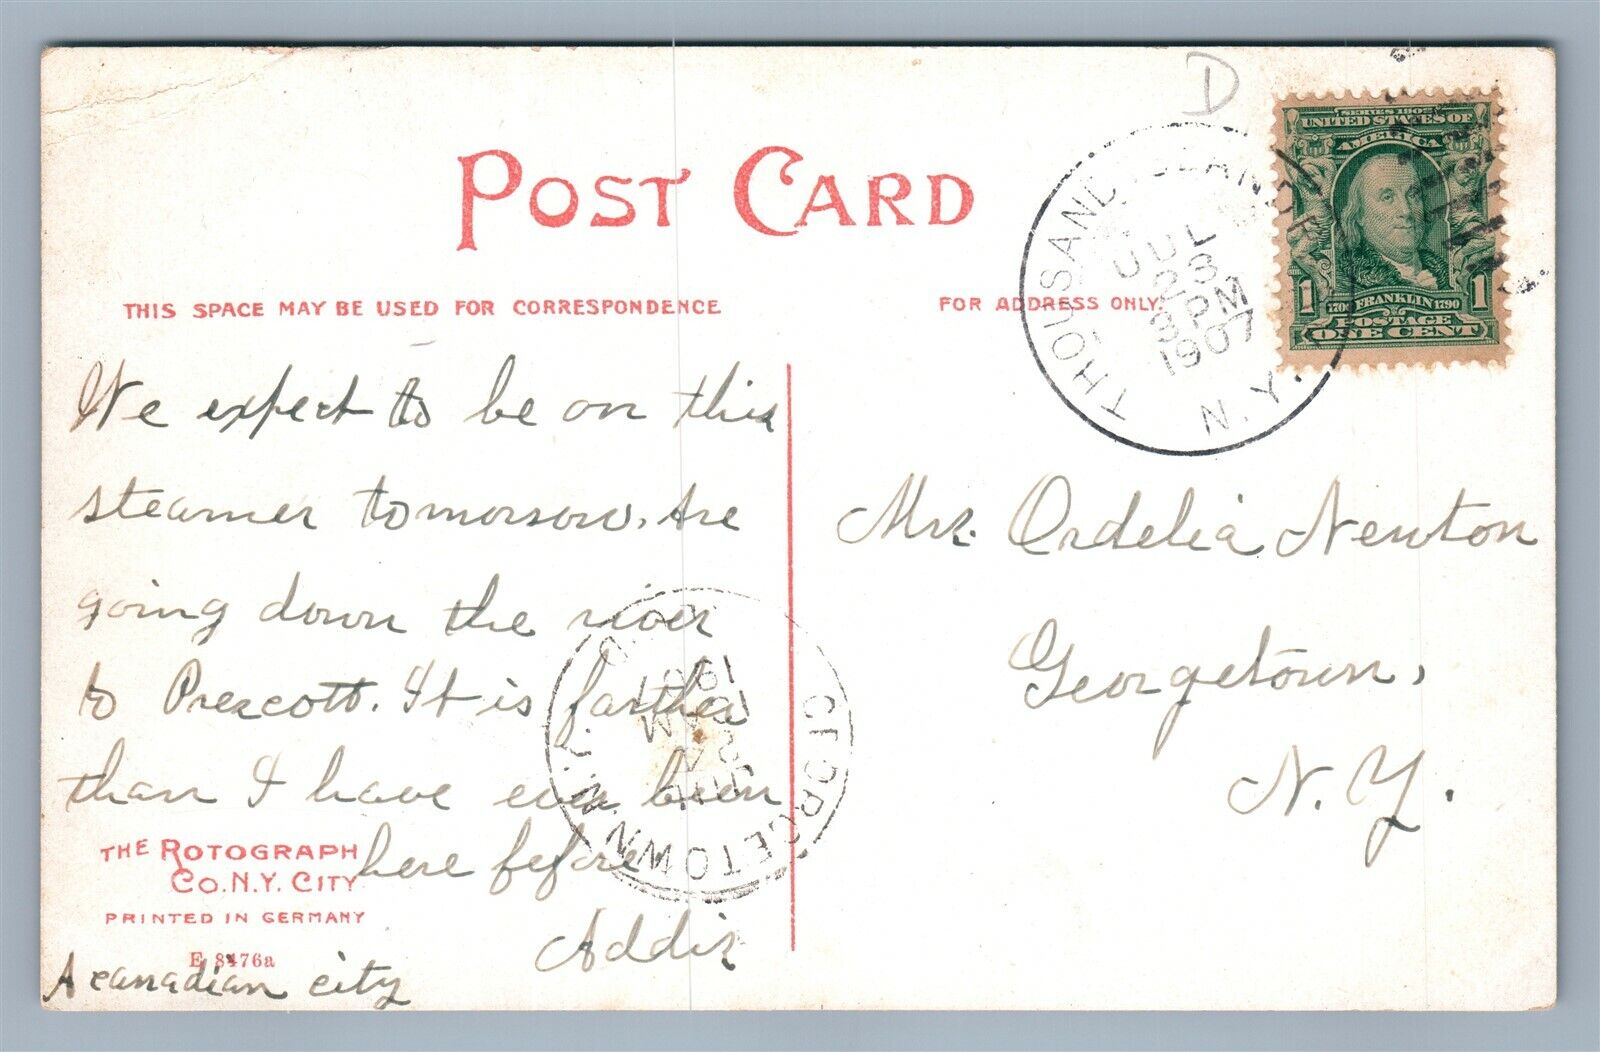 D
POST CARD
THIS SPACE MAY BE USED FOR CORRESPONDENCE
FOR ADDRESS ONLY.
THOUSAND ISLAND PARK
JUL
23
8 PM
1907
N.Y.
SERIES 1902
UNITED STATES OF
AMERICA
1 1706 FRANKLIN 1790 1
POSTAGE
ONE CENT
We expect to be on this
steamer tomorrow. Are
going down the river
to Prescott. It is farther
than I have ever been
here before
Addie
A canadian city
Mrs. Ordelia Newton
Georgetown,
N.Y.
GEORGETOWN
N.Y.
JUL
24
10 AM
1907
THE ROTOGRAPH
CO. N.Y. CITY
PRINTED IN GERMANY
E 8476a